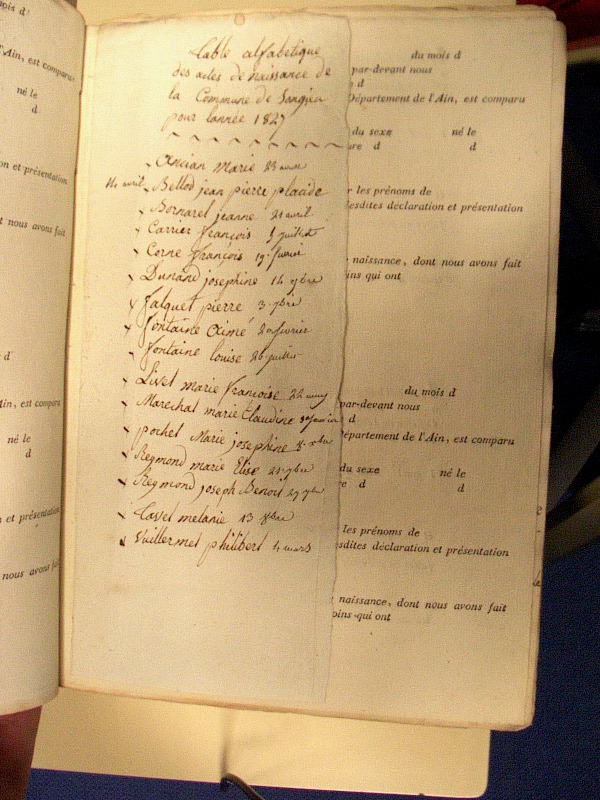 mois d
l'Ain, est comparu
né le
d
on et présentation
t nous avons fait
d
Ain, est comparu
né le
d
on et présentation
nous avons fait
Table alfabetique
des actes de naissance de
la Commune de
pour lannée 1827
Ancian Marie 23
14 avril Bellod jean pierre placide
Bornarel jeanne 21 avril
Carrier françois 5 juillet
Corne françois 19 fevrier
Dunand josephine 14 9bre
falquet pierre 3 9bre
fontaine Aimé 20 fevrier
fontaine louise 26 juillet
Livet marie françoise 22
Marechal marie Claudine
pochet Marie josephine 8
Reymond marie Elise 21 9bre
Reymond joseph Benoit 29 9bre
melanie 13 8bre
Vuillermet philibert 4 mars
du mois d
par-devant nous
d
Département de l'Ain, est comparu
du sexe né le
d d
r les prénoms de
lesdites déclaration et présentation
naissance, dont nous avons fait
ins qui ont
du mois d
par-devant nous
d
Département de l'Ain, est comparu
du sexe né le
e d d
les prénoms de
sdites déclaration et présentation
naissance, dont nous avons fait
oins qui ont